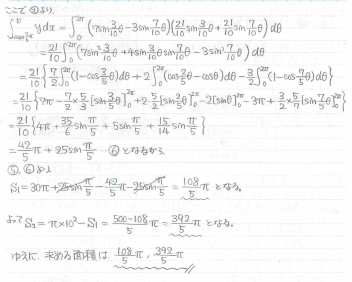 ここで ④より,
∫_{10cos\frac{2}{5}π}^{10} ydx = ∫_0^{2π} (7sin\frac{3}{10}θ - 3sin\frac{7}{10}θ)(\frac{21}{10}sin\frac{3}{10}θ + \frac{21}{10}sin\frac{7}{10}θ) dθ
= \frac{21}{10}∫_0^{2π} (7sin²\frac{3}{10}θ + 4sin\frac{3}{10}θ sin\frac{7}{10}θ - 3sin²\frac{7}{10}θ) dθ
= \frac{21}{10}{\frac{7}{2}∫_0^{2π}(1-cos\frac{3}{5}θ)dθ + 2∫_0^{2π}(cos\frac{2}{5}θ - cosθ)dθ - \frac{3}{2}∫_0^{2π}(1-cos\frac{7}{5}θ)dθ}
= \frac{21}{10}{7π - \frac{7}{2}×\frac{5}{3}[sin\frac{3}{5}θ]_0^{2π} + 2·\frac{5}{2}[sin\frac{2}{5}θ]_0^{2π} - 2[sinθ]_0^{2π} - 3π + \frac{3}{2}×\frac{5}{7}[sin\frac{7}{5}θ]_0^{2π}}
= \frac{21}{10}{4π + \frac{35}{6}sin\frac{π}{5} + 5sin\frac{π}{5} + \frac{15}{14}sin\frac{π}{5}}
= \frac{42}{5}π + 25sin\frac{π}{5} …⑥ となるから
⑤, ⑥より
S₁ = 30π + 25sin\frac{π}{5} - \frac{42}{5}π - 25sin\frac{π}{5} = \frac{108}{5}π となる。
よって S₂ = π×10² - S₁ = \frac{500-108}{5}π = \frac{392}{5}π となる。
ゆえに, 求める面積は \frac{108}{5}π, \frac{392}{5}π